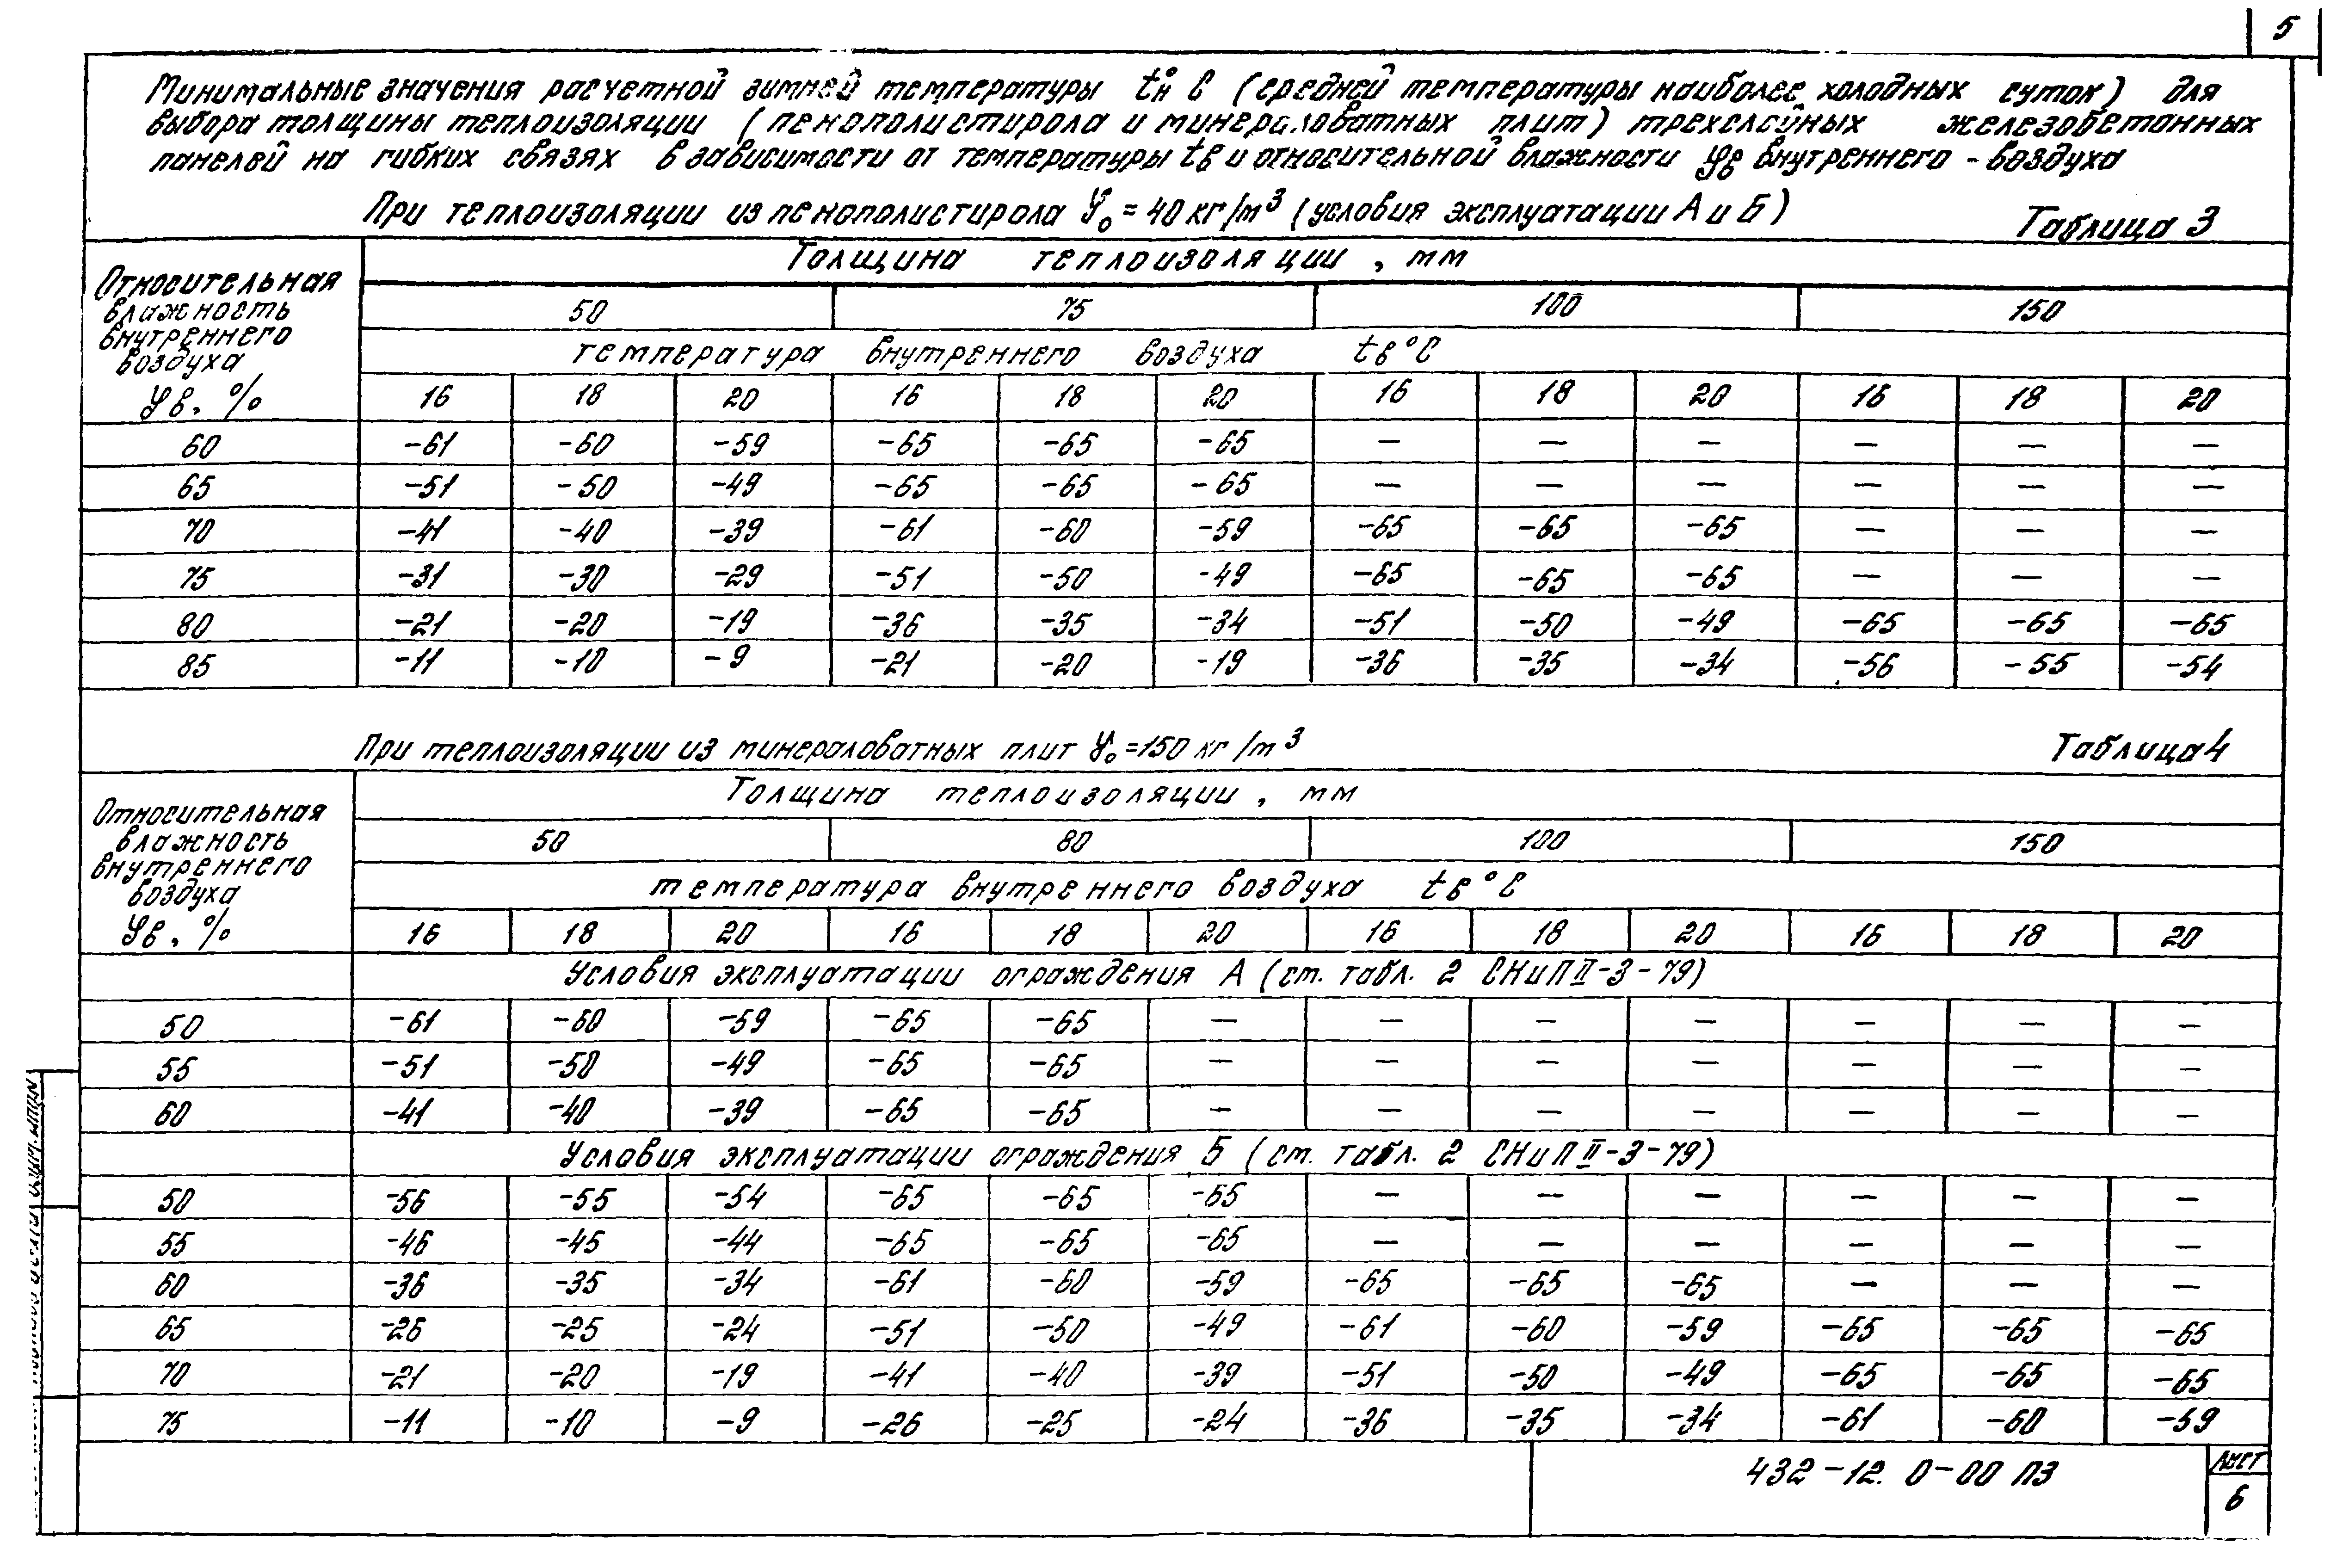 5
Минимальные значения расчетной зимней температуры tн° С (средней температуры наиболее холодных суток) для
выбора толщины теплоизоляции (пенополистирола и минераловатных плит) трехслойных железобетонных
панелей на гибких связях в зависимости от температуры tв и относительной влажности φв внутреннего - воздуха
При теплоизоляции из пенополистирола γ₀ = 40 кг/м³ (условия эксплуатации А и Б)
Таблица 3
Относительная влажность внутреннего воздуха φв, %
Толщина теплоизоляции, мм
50 75 100 150
температура внутреннего воздуха tв °С
16 18 20 16 18 20 16 18 20 16 18 20
60 -61 -60 -59 -65 -65 -65 — — — — — —
65 -51 -50 -49 -65 -65 -65 — — — — — —
70 -41 -40 -39 -61 -60 -59 -65 -65 -65 — — —
75 -31 -30 -29 -51 -50 -49 -65 -65 -65 — — —
80 -21 -20 -19 -36 -35 -34 -51 -50 -49 -65 -65 -65
85 -11 -10 -9 -21 -20 -19 -36 -35 -34 -56 -55 -54
При теплоизоляции из минераловатных плит γ₀ = 150 кг/м³
Таблица 4
Относительная влажность внутреннего воздуха φв, %
Толщина теплоизоляции, мм
50 80 100 150
температура внутреннего воздуха tв °С
16 18 20 16 18 20 16 18 20 16 18 20
Условия эксплуатации ограждения А (ст. табл. 2 СНиП II-3-79)
50 -61 -60 -59 -65 -65 — — — — — — —
55 -51 -50 -49 -65 -65 — — — — — — —
60 -41 -40 -39 -65 -65 — — — — — — —
Условия эксплуатации ограждения Б (ст. табл. 2 СНиП II-3-79)
50 -56 -55 -54 -65 -65 -65 — — — — — —
55 -46 -45 -44 -65 -65 -65 — — — — — —
60 -36 -35 -34 -61 -60 -59 -65 -65 -65 — — —
65 -26 -25 -24 -51 -50 -49 -61 -60 -59 -65 -65 -65
70 -21 -20 -19 -41 -40 -39 -51 -50 -49 -65 -65 -65
75 -11 -10 -9 -26 -25 -24 -36 -35 -34 -61 -60 -59
432-12. 0-00 ПЗ
лист
6